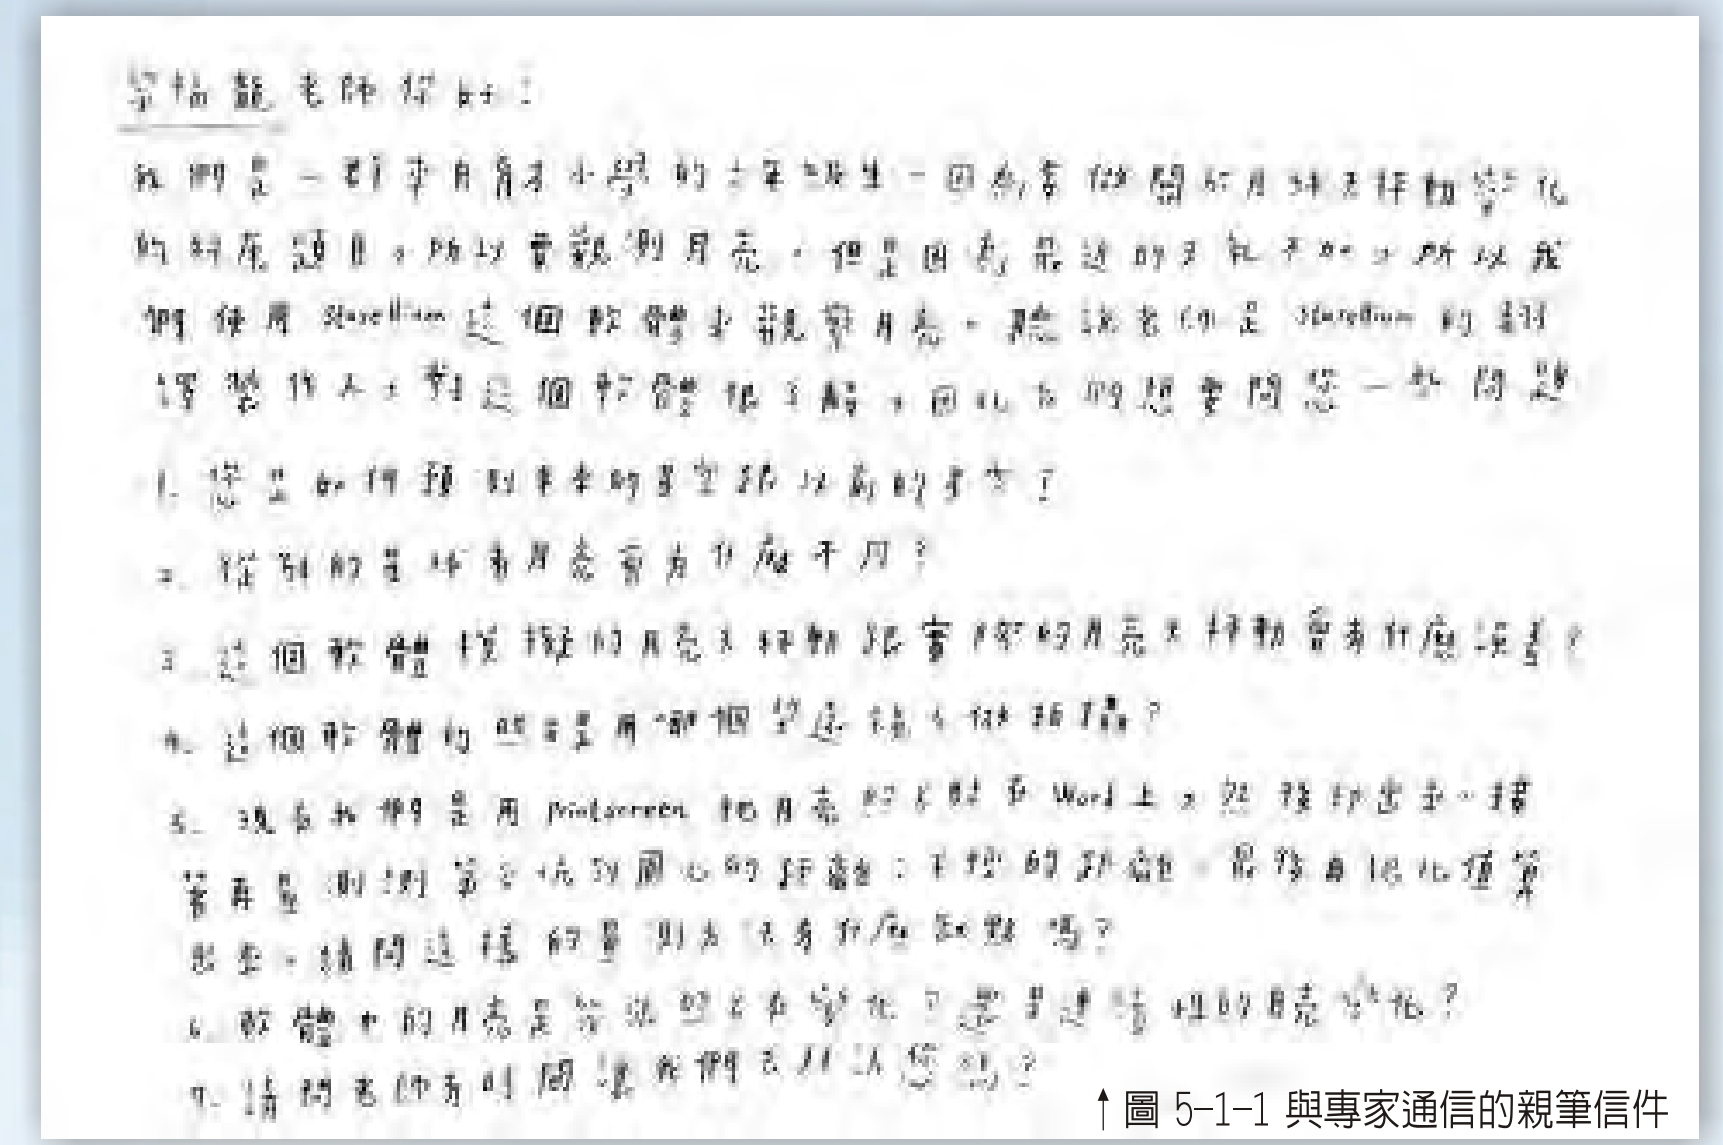 老師您好：
我們是一群來自育才小學的六年級生，因為要做關於月球天秤動變化
的科展題目，所以要觀測月亮，但是因為最近的天氣不好，所以我
們使用 Stellarium 這個軟體去觀察月亮。聽說老師是 Stellarium 的翻
譯製作人，對這個軟體很了解，因此我們想要問您一些問題
1. 您是如何預測未來的星空跟以前的星空？
2. 從別的星球看月亮會有什麼不同？
3. 這個軟體模擬的月亮天秤動跟實際的月亮天秤動會有什麼誤差？
4. 這個軟體的 是用哪個望遠鏡去做拍攝？
5. 現在我們是用 printscreen 把月亮的 貼在 Word 上，然後印出來，接
著再量測 第谷坑到圓心的距離： 的距離，最後再把比值算
出來，請問這樣的量測方法有什麼缺點嗎？
6. 軟體中的月亮是 在變化？還是連續性的月亮變化？
7. 請問老師有時間讓我們去拜訪您嗎？
↑圖 5-1-1 與專家通信的親筆信件